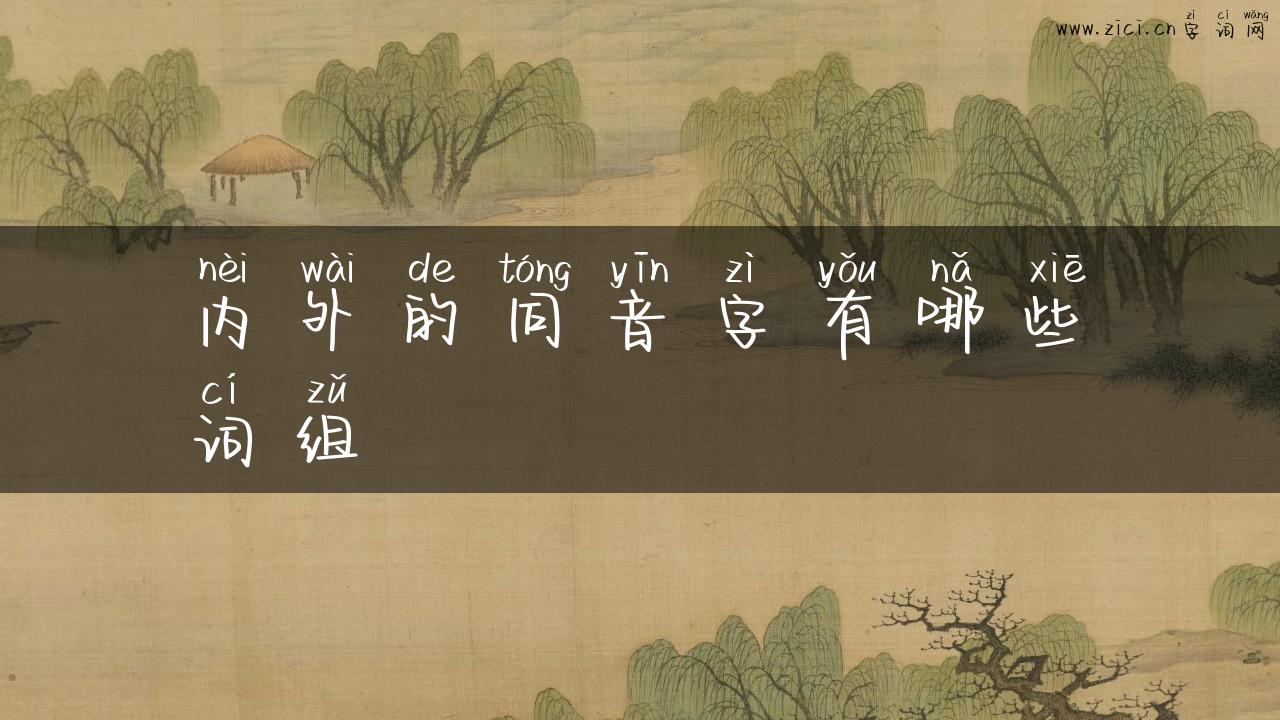 zì cí wǎng
www.zici.cn 字词网
nèi wài de tóng yīn zì yǒu nǎ xiē
内外的同音字有哪些
cí zǔ
词组